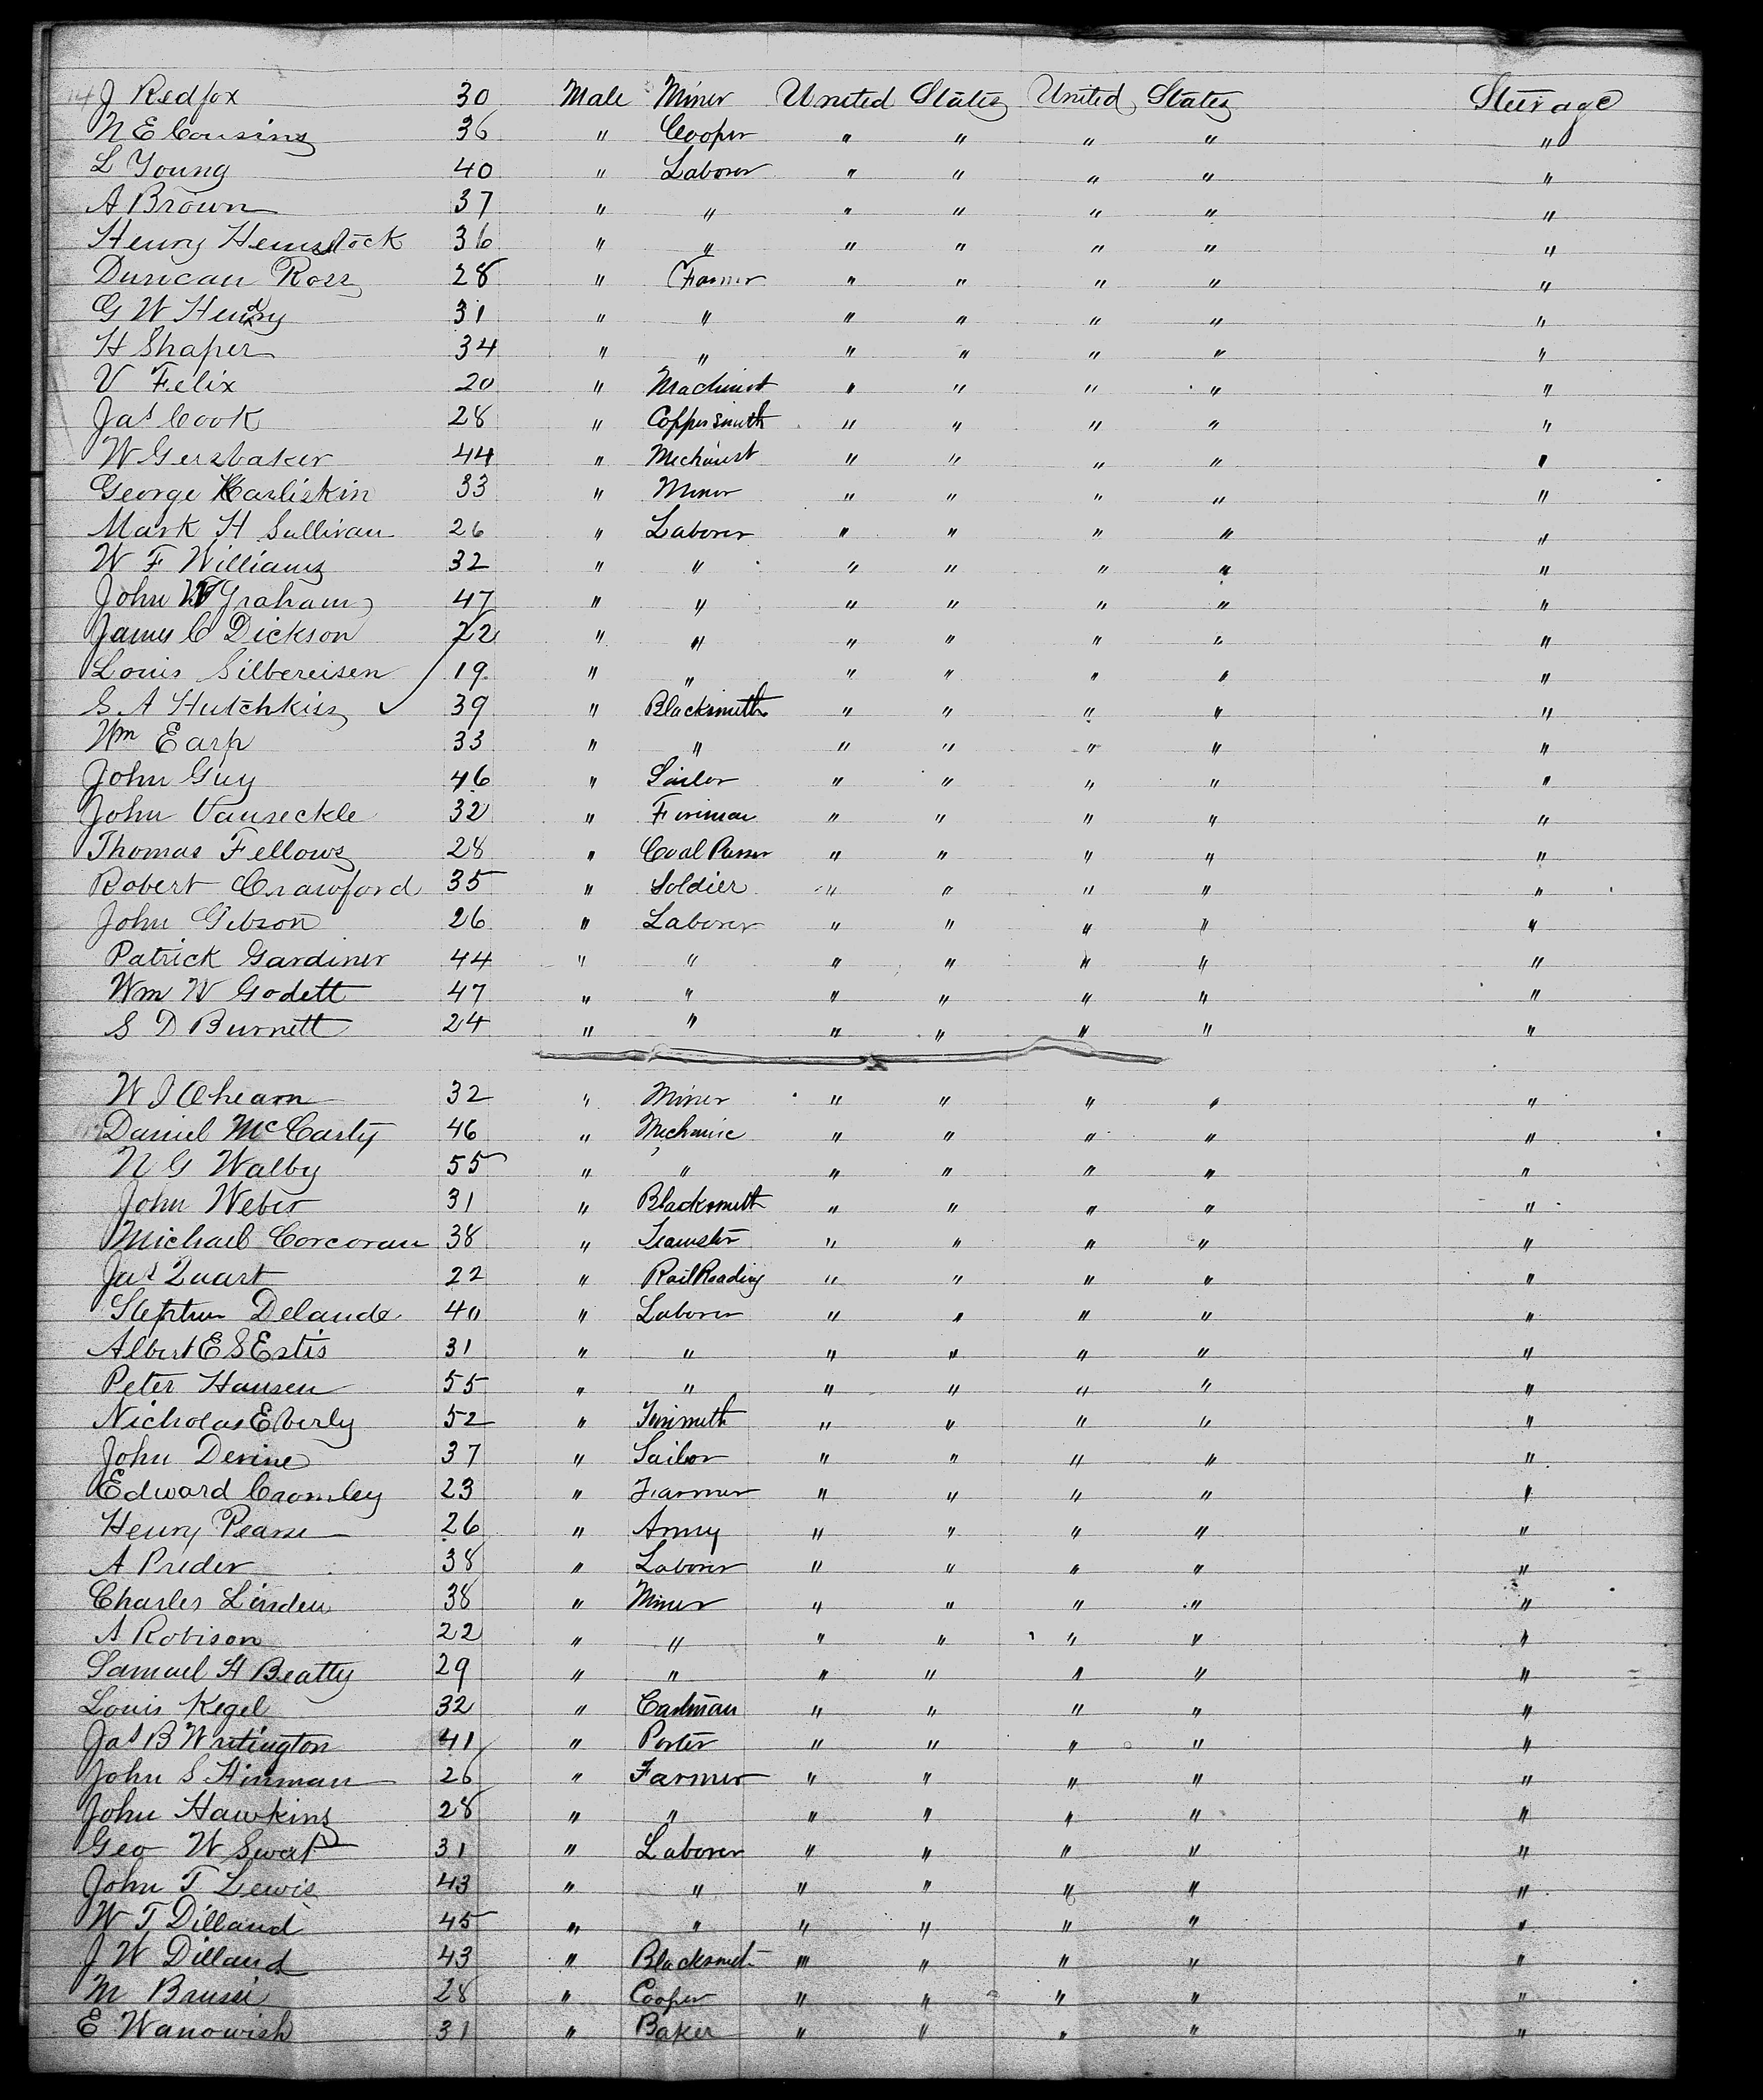 J Redfox 30 Male Miner United States United States Steerage
N E Cousins 36 " Cooper " " " " "
L Young 40 " Laborer " " " " "
A Brown 37 " " " " " " "
Henry Hemstock 36 " " " " " " "
Duncan Ross 28 " Farmer " " " " "
G W Hendry 31 " " " " " " "
H Shaper 34 " " " " " " "
V Felix 20 " Machinist " " " " "
Jas Cook 28 " Coppersmith " " " " "
W Gersbaker 44 " Mechinist " " " " "
George Karliskin 33 " Miner " " " " "
Mark H Sullivan 26 " Laborer " " " " "
W F Williams 32 " " " " " " "
John W Graham 47 " " " " " " "
James C Dickson 22 " " " " " " "
Louis Silbereisen 19 " " " " " " "
S A Hutchkiss 39 " Blacksmith " " " " "
Wm Earp 33 " " " " " " "
John Guy 46 " Sailor " " " " "
John Vanseckle 32 " Fireman " " " " "
Thomas Fellows 28 " Coal Passer " " " " "
Robert Crawford 35 " Soldier " " " " "
John Gibson 26 " Laborer " " " " "
Patrick Gardiner 44 " " " " " " "
Wm W Godett 47 " " " " " " "
S D Burnett 24 " " " " " " "
W J Ahearn 32 " Miner " " " " "
Daniel McCarty 46 " Mechanic " " " " "
N G Walby 55 " " " " " " "
John Weber 31 " Blacksmith " " " " "
Michael Corcoran 38 " Teamster " " " " "
Jas Quart 22 " RailRoading " " " " "
Stephen Delande 40 " Laborer " " " " "
Albert E S Estis 31 " " " " " " "
Peter Hansen 55 " " " " " " "
Nicholas Eberly 52 " Tinsmith " " " " "
John Devine 37 " Sailor " " " " "
Edward Cromley 23 " Farmer " " " " "
Henry Pearse 26 " Army " " " " "
A Preder 38 " Laborer " " " " "
Charles Linden 38 " Miner " " " " "
A Robison 22 " " " " " " "
Samuel H Beatty 29 " " " " " " "
Louis Kegel 32 " " " " " "
Jas B Writington 41 " Porter " " " " "
John S Hinman 26 " Farmer " " " " "
John Hawkins 28 " " " " " " "
Geo W 31 " Laborer " " " " "
John T Lewis 43 " " " " " " "
W T Dilland 45 " " " " " " "
J W Dilland 43 " Blacksmit " " " " "
M 28 " Cooper " " " " "
E Wanowish 31 " Baker " " " " "